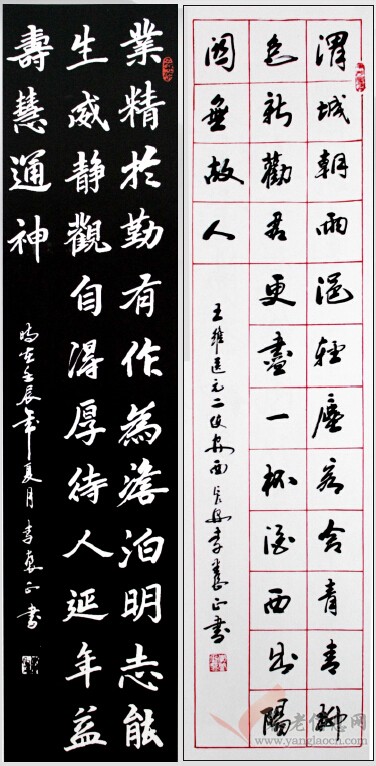 渭城朝雨浥輕塵客舍青青柳
色新勸君更盡一杯酒西出陽
關無故人
王維送元二使安西 李正書
業精於勤有作為澹泊明志能
生威静觀自得厚待人延年益
壽慧通神
時在壬辰年夏月李正書
www.yanglaocn.com